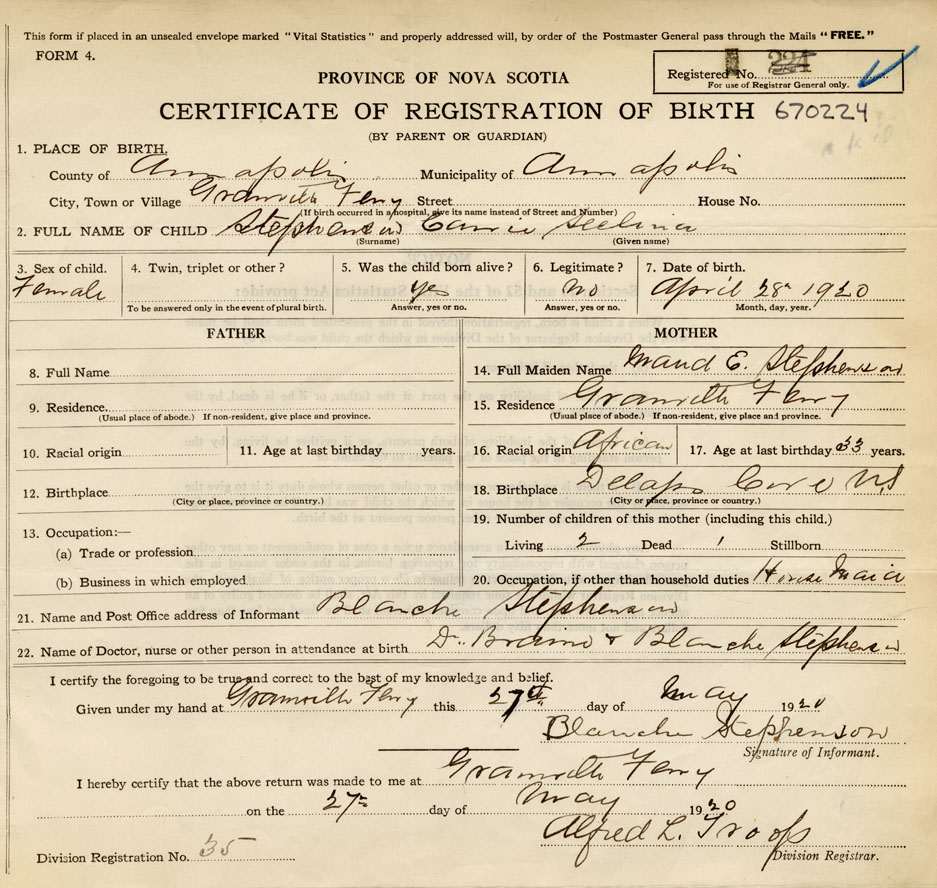 This form if placed in an unsealed envelope marked "Vital Statistics" and properly addressed will, by order of the Postmaster General pass through the Mails "FREE."
FORM 4.
PROVINCE OF NOVA SCOTIA
Registered No. 224
For use of Registrar General only.
CERTIFICATE OF REGISTRATION OF BIRTH 670224
(BY PARENT OR GUARDIAN)
1. PLACE OF BIRTH.
County of Annapolis Municipality of Annapolis
City, Town or Village Granville Ferry Street House No.
(If birth occurred in a hospital, give its name instead of Street and Number)
2. FULL NAME OF CHILD Stephenson Carrie Seelina
(Surname) (Given name)
3. Sex of child. 4. Twin, triplet or other? 5. Was the child born alive? 6. Legitimate? 7. Date of birth.
Female yes no April 28 1920
To be answered only in the event of plural birth. Answer, yes or no. Answer, yes or no. Month, day, year.
FATHER
8. Full Name
9. Residence.
(Usual place of abode.) If non-resident, give place and province.
10. Racial origin 11. Age at last birthday years.
12. Birthplace
(City or place, province or country.)
13. Occupation:—
(a) Trade or profession
(b) Business in which employed
MOTHER
14. Full Maiden Name Maud E. Stephenson
15. Residence Granville Ferry
(Usual place of abode.) If non-resident, give place and province.
16. Racial origin African 17. Age at last birthday 33 years.
18. Birthplace Delaps Cove N.S
(City or place, province or country.)
19. Number of children of this mother (including this child.)
Living 2 Dead 1 Stillborn
20. Occupation, if other than household duties House Maid
21. Name and Post Office address of Informant Blanche Stephenson
22. Name of Doctor, nurse or other person in attendance at birth Dr. Braine & Blanche Stephenson
I certify the foregoing to be true and correct to the best of my knowledge and belief.
Given under my hand at Granville Ferry this 27th day of May 1920
Blanche Stephenson
Signature of Informant.
I hereby certify that the above return was made to me at Granville Ferry
on the 27th day of May 1920
Alfred L. Troop
Division Registration No. 35 Division Registrar.